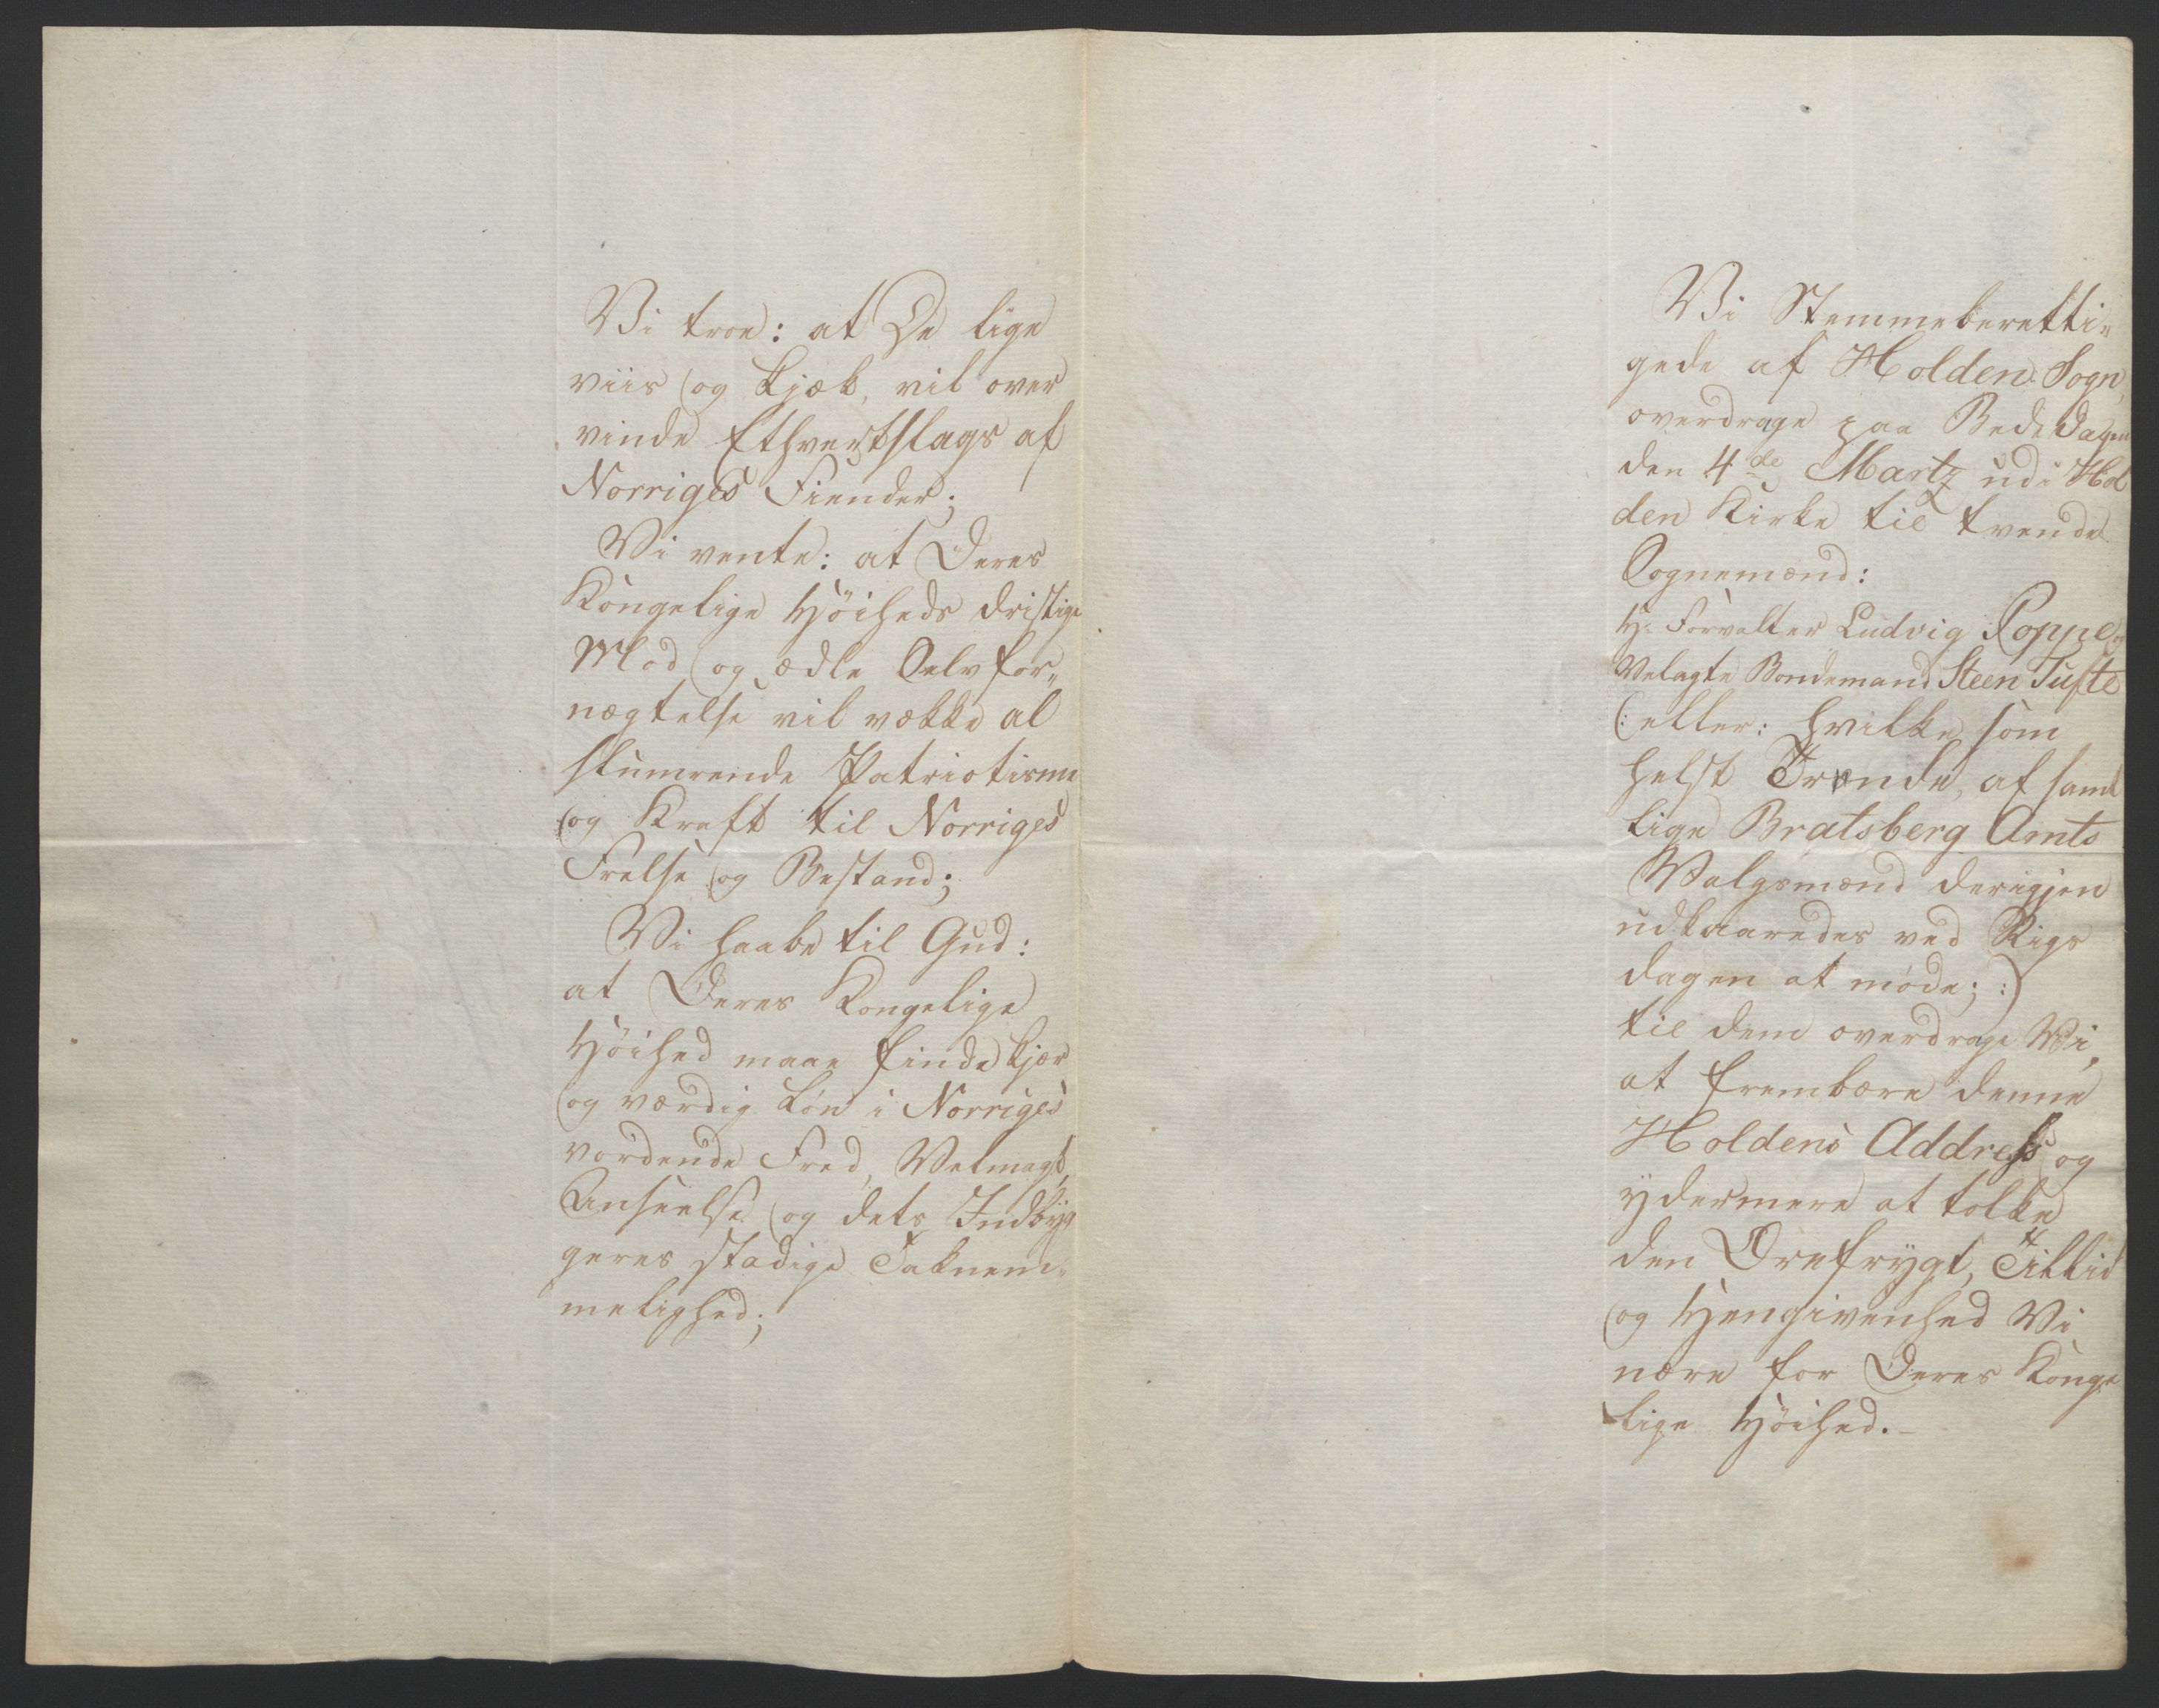 Vi troe: at De lige
viis og kjæk, vil over
vinde Ethvertslags af
Norriges Fiender;
Vi vente: at Deres
Kongelige Höiheds dristige
Mod og ædle Selvfor„
nægtelse vil vække al
slumrende Patriotisme
og Kraft til Norriges
Frelse og Bestand;
Vi haabe til Gud:
at Deres Kongelige
Höihed maae finde kjær
og værdig Lön i Norriges
vordende Fred, Velmagt,
Anseelse og dets Indbyg
geres stadige Taknem„
melighed;
Vi Stemmeberetti„
gede af Holden Sogn,
overdrage paa Bededagen
den 4de Martz udi Hol
den Kirke til tvende
Sognemænd:
Hr Forvalter Ludvig Poppe og
Velagte Bondemand Steen Tufte
(: eller: hvilke som
helst Trende, af samt
lige Bratsberg Amts
Valgsmænd derigjen
udkaaredes ved Rigs
dagen at møde; :)
til dem overdrage Vi,
at frembære denne
Holdens Address og
ydermere at tolke
den Ærefrygt, Tillid
og Hengivenhed Vi
nære for Deres Konge
lige Höihed. -